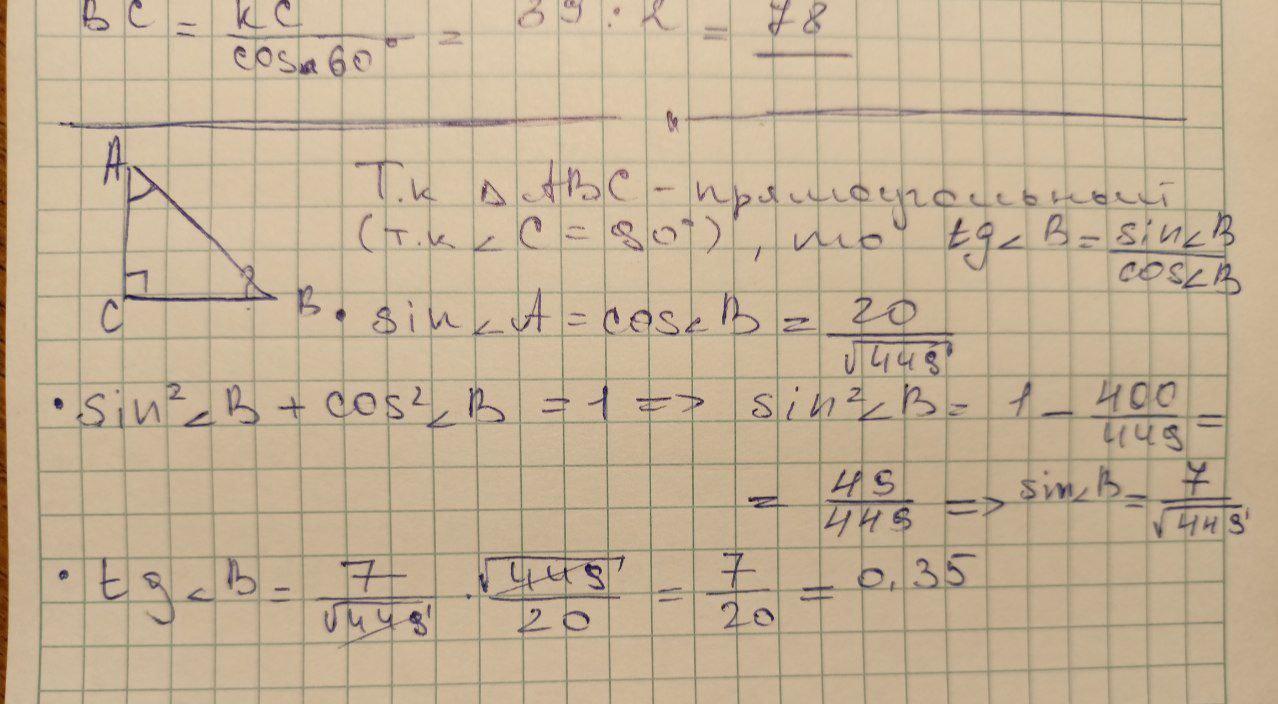 BC = KC / cos 60° = 39 : 2 = 78
A
Т.к △ ABC - прямоугольный
(т.к ∠ C = 90°), то tg∠ B = sin∠B / cos∠B
C B
• sin∠A = cos∠B = 20 / √449
• sin²∠B + cos²∠B = 1 => sin²∠B = 1 - 400 / 449 =
= 49 / 449 => sin∠B = 7 / √449
• tg∠B = 7 / √449 · √449 / 20 = 7 / 20 = 0,35